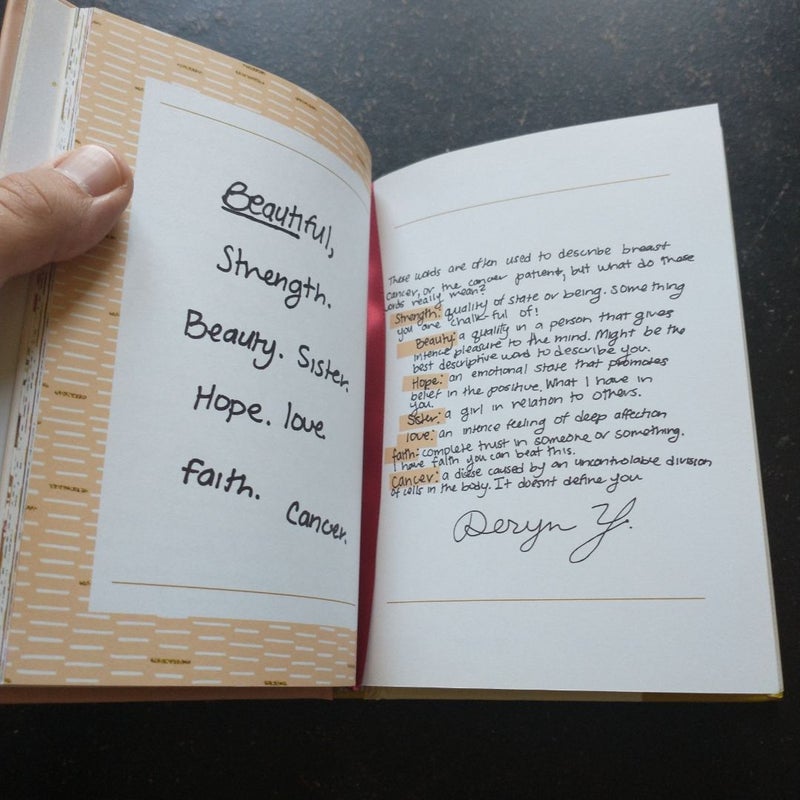 Beautiful,
Strength.
Beauty. Sister.
Hope. love.
faith.
Cancer.
These words are often used to describe breast
cancer, or the cancer patient, but what do these
words really mean?
Strength: quality of state or being. Something
you are chalk-ful of!
Beauty: a quality in a person that gives
intence pleasure to the mind. Might be the
best descriptive word to describe you.
Hope: an emotional state that promotes
belief in the positive. What I have in
you.
Sister: a girl in relation to others.
love: an intence feeling of deep affection
faith: complete trust in someone or something.
I have faith you can beat this.
Cancer: a diese caused by an uncontrolable division
of cells in the body. It doesnt define you
Deryn Y.